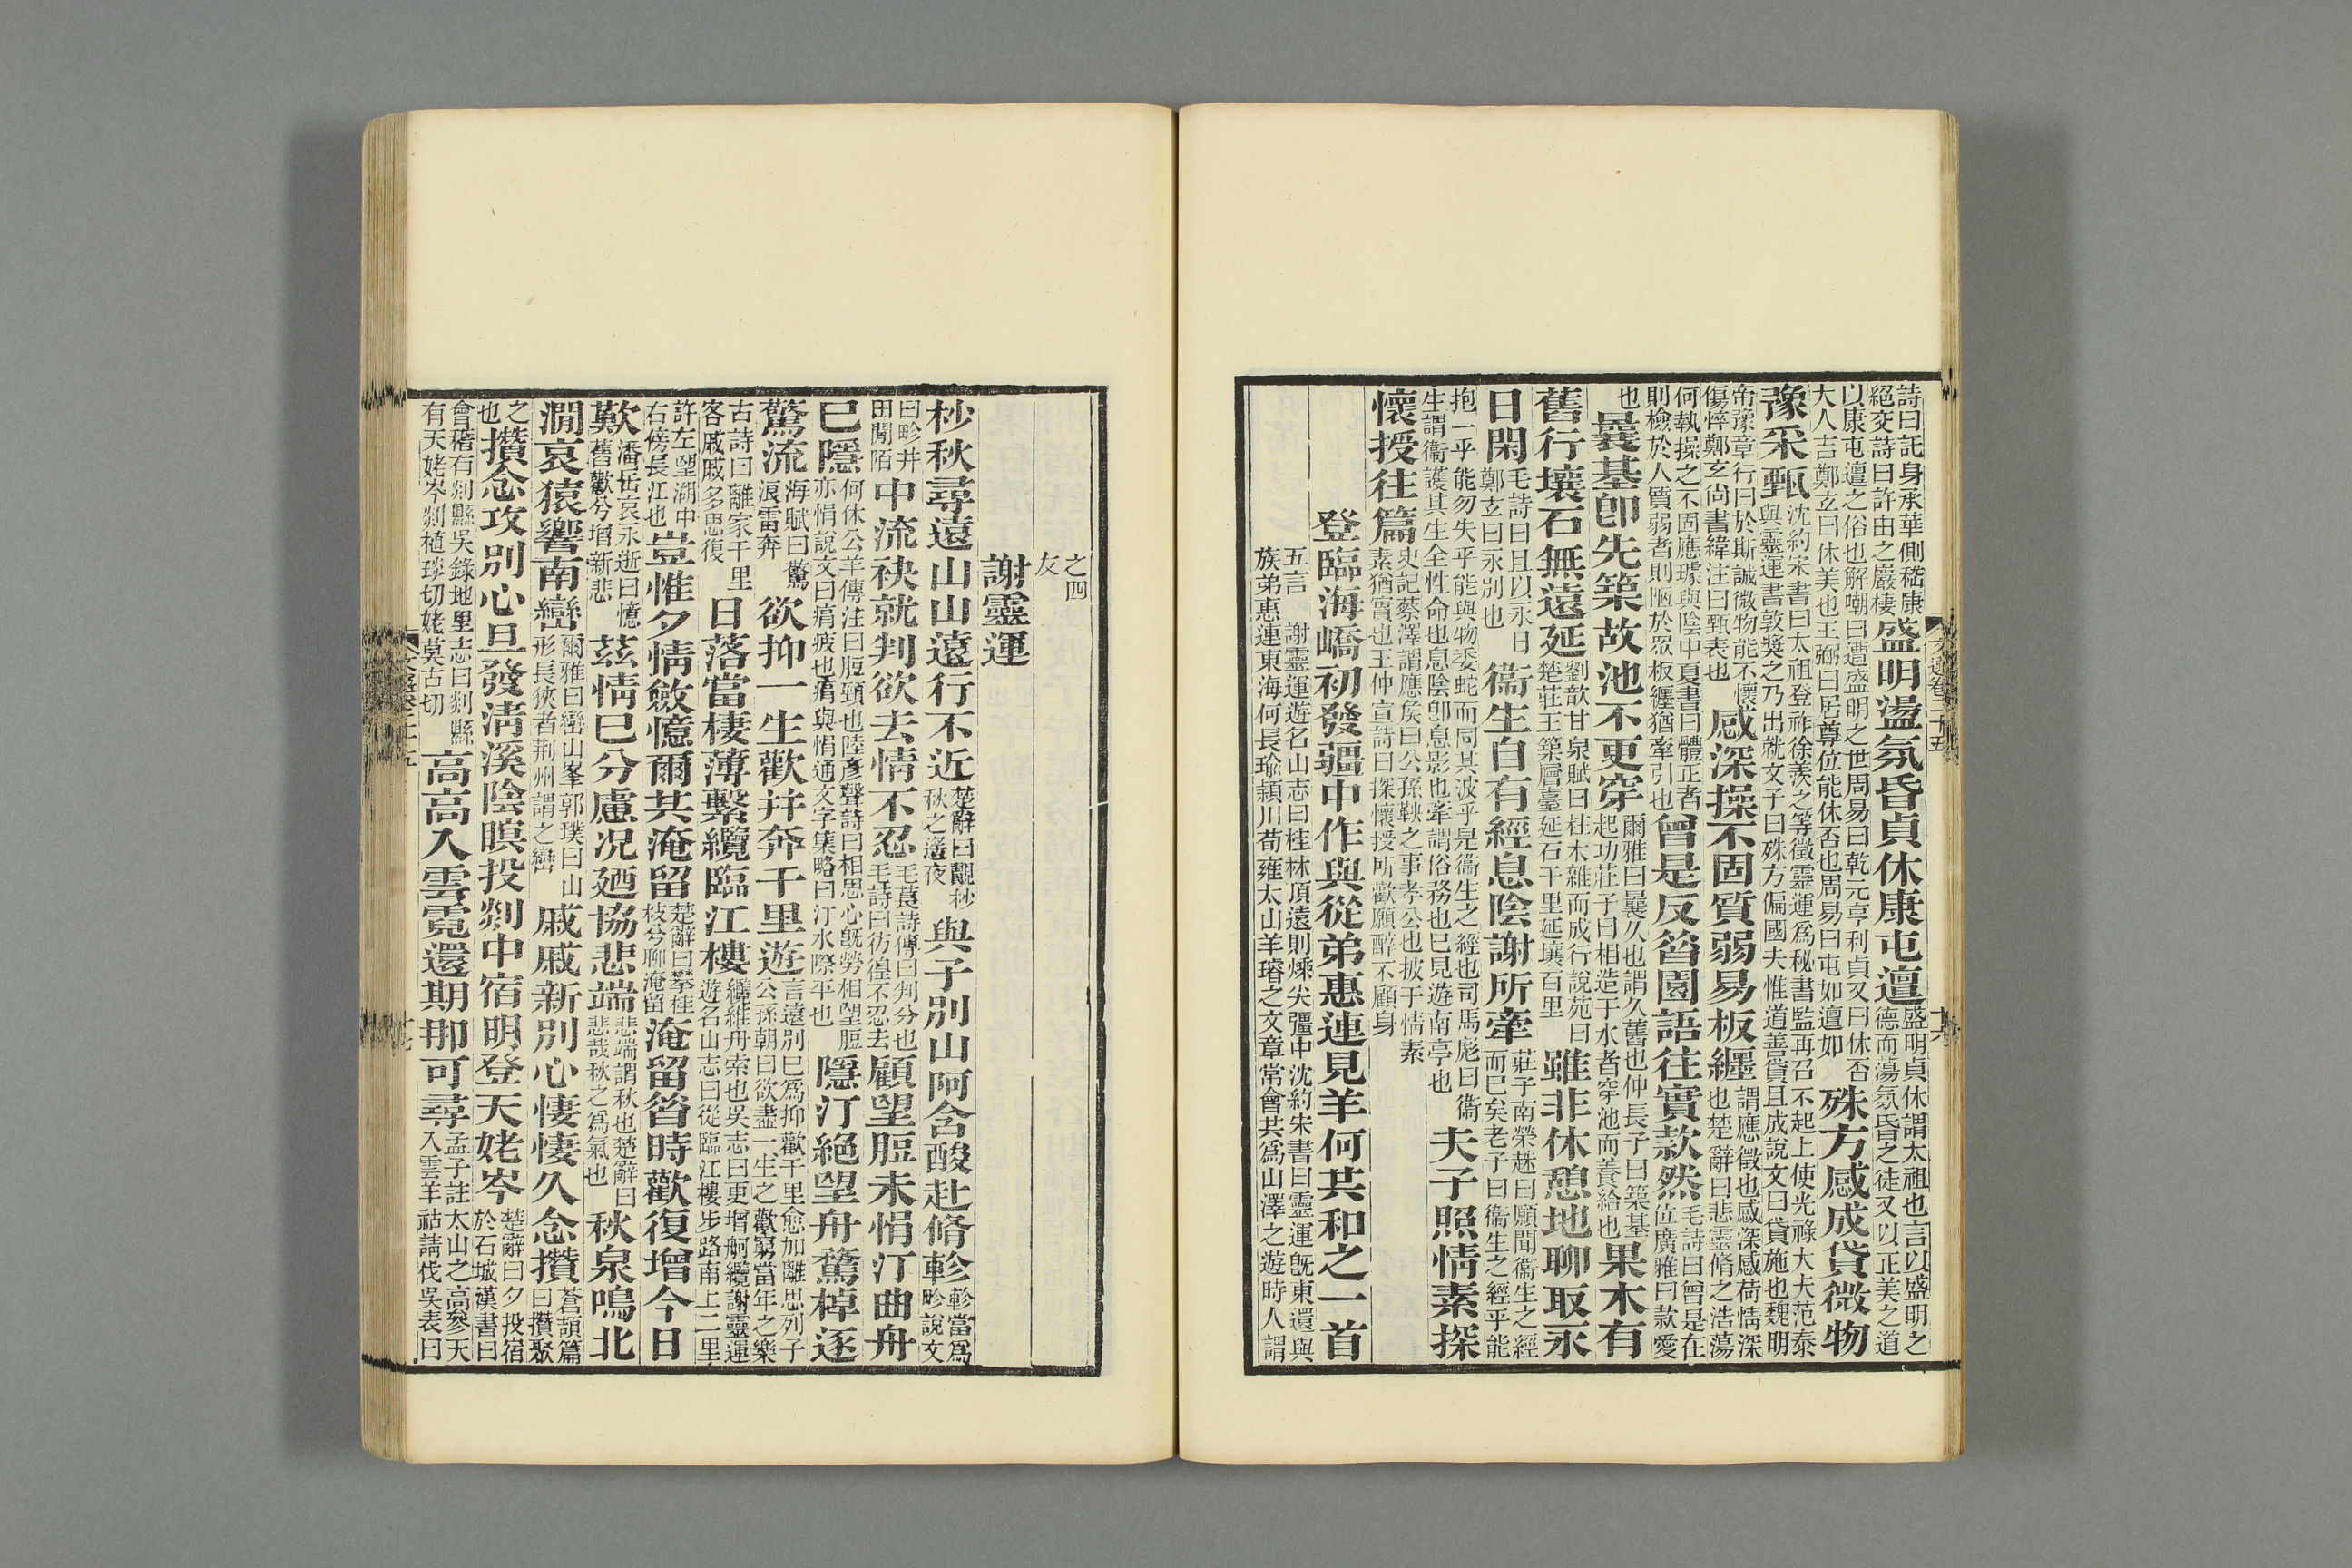 詩曰託身承華側嵇康
絕交詩曰許由之巖棲
盛明盪氛昏貞休康屯邅
盛明貞休謂太祖也言以盛明之
德而蕩氛昏之徒又以正美之道
以康屯邅之俗也解嘲曰遭盛明之世周易曰乾元亨利貞又曰休否
大人吉鄭玄曰休美也王弼曰居尊位能休否也周易曰屯如邅如
殊方感成貸微物
豫采甄
沈約宋書曰太祖登祚徐羨之等徵靈運爲秘書監再召不起上使光祿大夫范泰
與靈運書敦獎之乃出就文子曰殊方偏國夫惟道善貸且成說文曰貸施也魏明
帝豫章行曰於斯誠微物能不懷
傷悴鄭玄尚書緯注曰甄表也
感深操不固質弱易板纏
謂應徵也感深感荷情深
也楚辭曰悲靈脩之浩蕩
何執操之不固應璩與陰中夏書曰體正者
則檢於人質弱者則陋於眾板纏猶牽引也
曾是反昝園語往實款然
毛詩曰曾是在
位廣雅曰款愛
也
曩基卽先築故池不更穿
爾雅曰曩久也謂久舊也仲長子曰築基
起功莊子曰相造于水者穿池而養給也
果木有
舊行壤石無遠延
劉歆甘泉賦曰桂木雜而成行說苑曰
楚莊王築層臺延石千里延壤百里
雖非休憩地聊取永
日閑
毛詩曰且以永日
鄭玄曰永別也
衞生自有經息陰謝所牽
莊子南榮趎曰願聞衞生之經
而已矣老子曰衞生之經乎能
抱一乎能勿失乎能與物委蛇而同其波乎是衞生之經也司馬彪曰衞
生謂衞護其生全性命也息陰卽息影也牽謂俗務也已見遊南亭也
夫子照情素探
懷授往篇
史記蔡澤謂應侯曰公孫鞅之事孝公也披于情素
素猶實也王仲宣詩曰探懷授所歡願醉不顧身
登臨海嶠初發疆中作與從弟惠連見羊何共和之一首
五言 謝靈運遊名山志曰桂林頂遠則嵊尖彊中沈約宋書曰靈運旣東還與
族弟惠連東海何長瑜潁川荀雍太山羊璿之文章常會共爲山澤之遊時人謂
文選卷二十五
十六
之四
友
謝靈運
杪秋尋遠山山遠行不近
楚辭曰靚杪
秋之遙夜
與子別山阿含酸赴脩軫
軫當爲
畛說文
曰畛井
田閒陌
中流袂就判欲去情不忍
毛萇詩傳曰判分也
毛詩曰彷徨不忍去
顧望脰未悁汀曲舟
已隱
何休公羊傳注曰脰頸也陸彥聲詩曰相思心旣勞相望脰
亦悁說文曰痟疲也痟與悁通文字集略曰汀水際平也
隱汀絕望舟騖棹逐
驚流
海賦曰驚
浪雷奔
欲抑一生歡幷奔千里遊
言遠別已爲抑歡千里愈加離思列子
公孫朝曰欲盡一生之歡窮當年之樂
古詩曰離家千里
客戚戚多思復
日落當棲薄繫纜臨江樓
纜維舟索也吳志曰更增舸纜謝靈運
遊名山志曰從臨江樓步路南上二里
許左望湖中
右傍長江也
豈惟夕情斂憶爾共淹留
楚辭曰攀桂
枝兮聊淹留
淹留昝時歡復增今日
歎
潘岳哀永逝曰憶
舊歡兮增新悲
茲情已分慮况廼協悲端
悲端謂秋也楚辭曰
悲哉秋之爲氣也
秋泉鳴北
澗哀猿響南巒
爾雅曰巒山峯郭璞曰山
形長狹者荆州謂之巒
戚戚新別心悽悽久念攢
蒼頡篇
曰攢聚
之
也
攢念攻別心旦發淸溪陰暝投剡中宿明登天姥岑
楚辭曰夕投宿
於石城漢書曰
會稽有剡縣吳錄地里志曰剡縣
有天姥岑剡植琰切姥莫古切
高高入雲霓還期那可尋
孟子註太山之高參天
入雲羊祜請伐吳表曰
文選卷二十五
十七